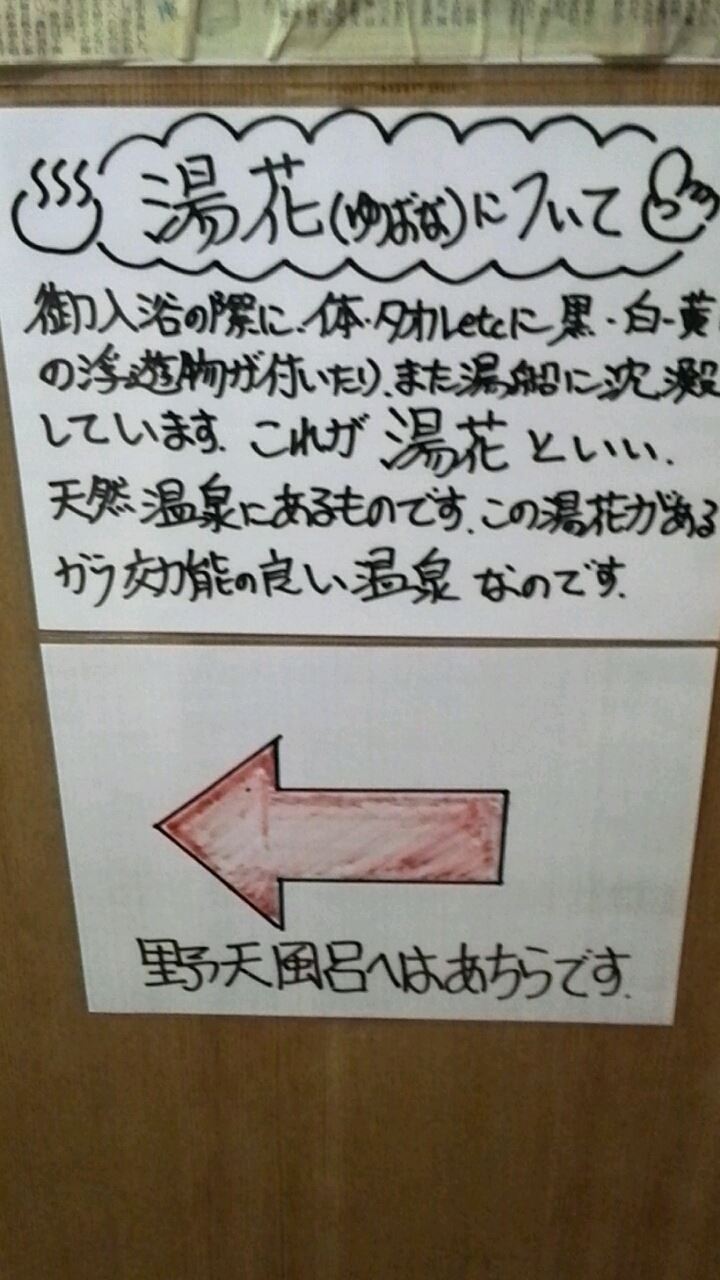 湯花(ゆばな)について
御入浴の際に、体・タオルetcに黒・白・黄
の浮遊物が付いたり、また湯船に沈澱
しています。これが湯花といい、
天然温泉にあるものです。この湯花がある
から効能の良い温泉なのです。
野天風呂へはあちらです。